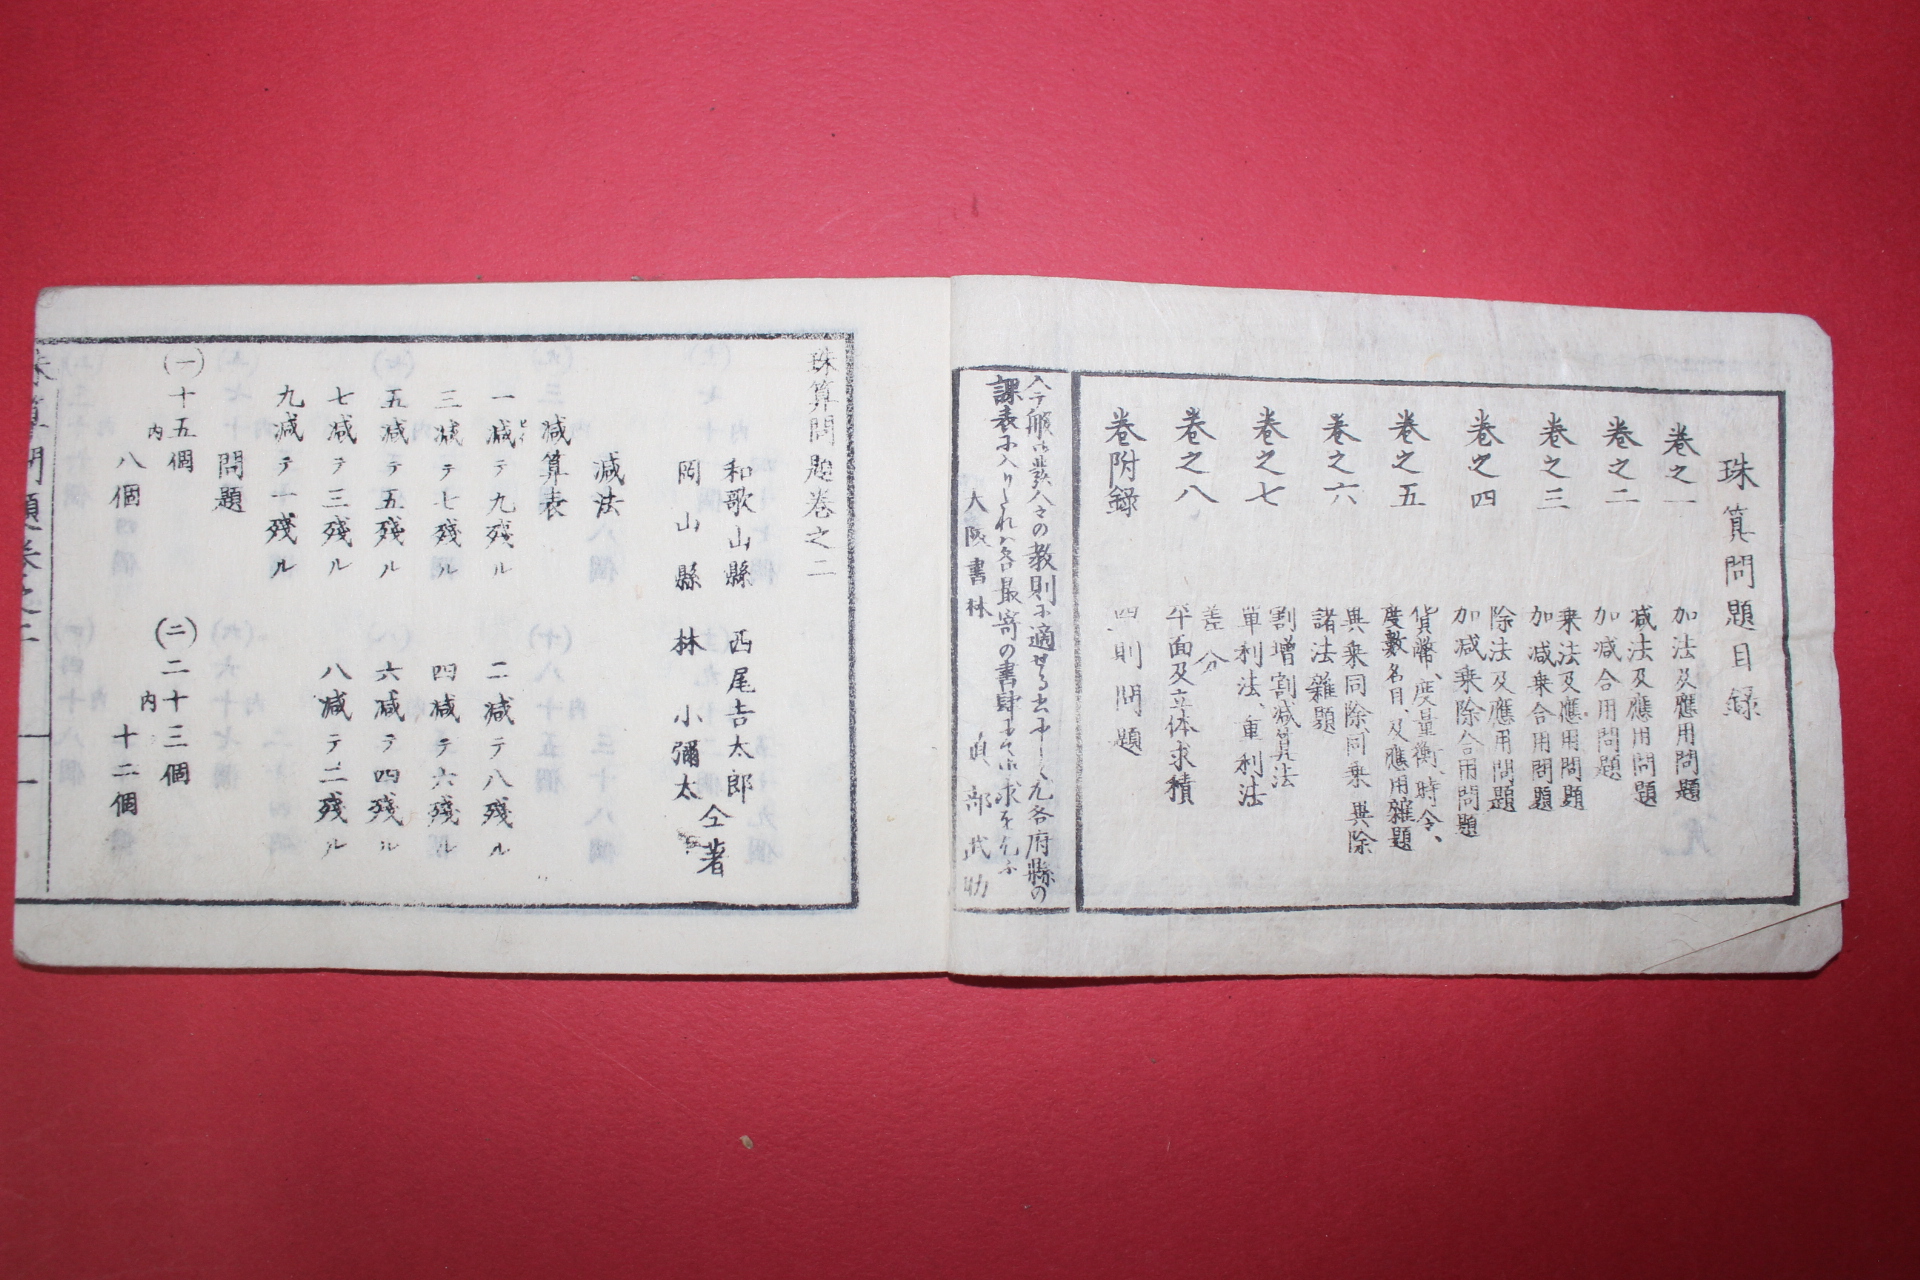 珠算問題目録
巻之一 加法及應用問題
巻之二 減法及應用問題
加減合用問題
巻之三 乗法及應用問題
加減乗合用問題
巻之四 除法及應用問題
加減乗除合用問題
巻之五 貨幣、度量衡、時令、
度數名目、及應用雑題
巻之六 異乗同除、同乗異除
諸法雑題
巻之七 割増割減算法
單利法、重利法
巻之八 差分
平面及立体求積
巻附録 四則問題
教則に適
各府縣の
課表に入
各最寄の書肆
大阪書林 部武助
珠算問題巻之二
和歌山縣 西尾吉太郎
岡山縣 林小彌太
仝著
減法
減算表
一減テ九残ル 二減テ八残ル
三減テ七残ル 四減テ六残ル
五減テ五残ル 六減テ四残ル
七減テ三残ル 八減テ二残ル
九減テ一残ル
問題
(一)十五個 (二)二十三個
内八個 内十二個
珠算問題巻之二 一